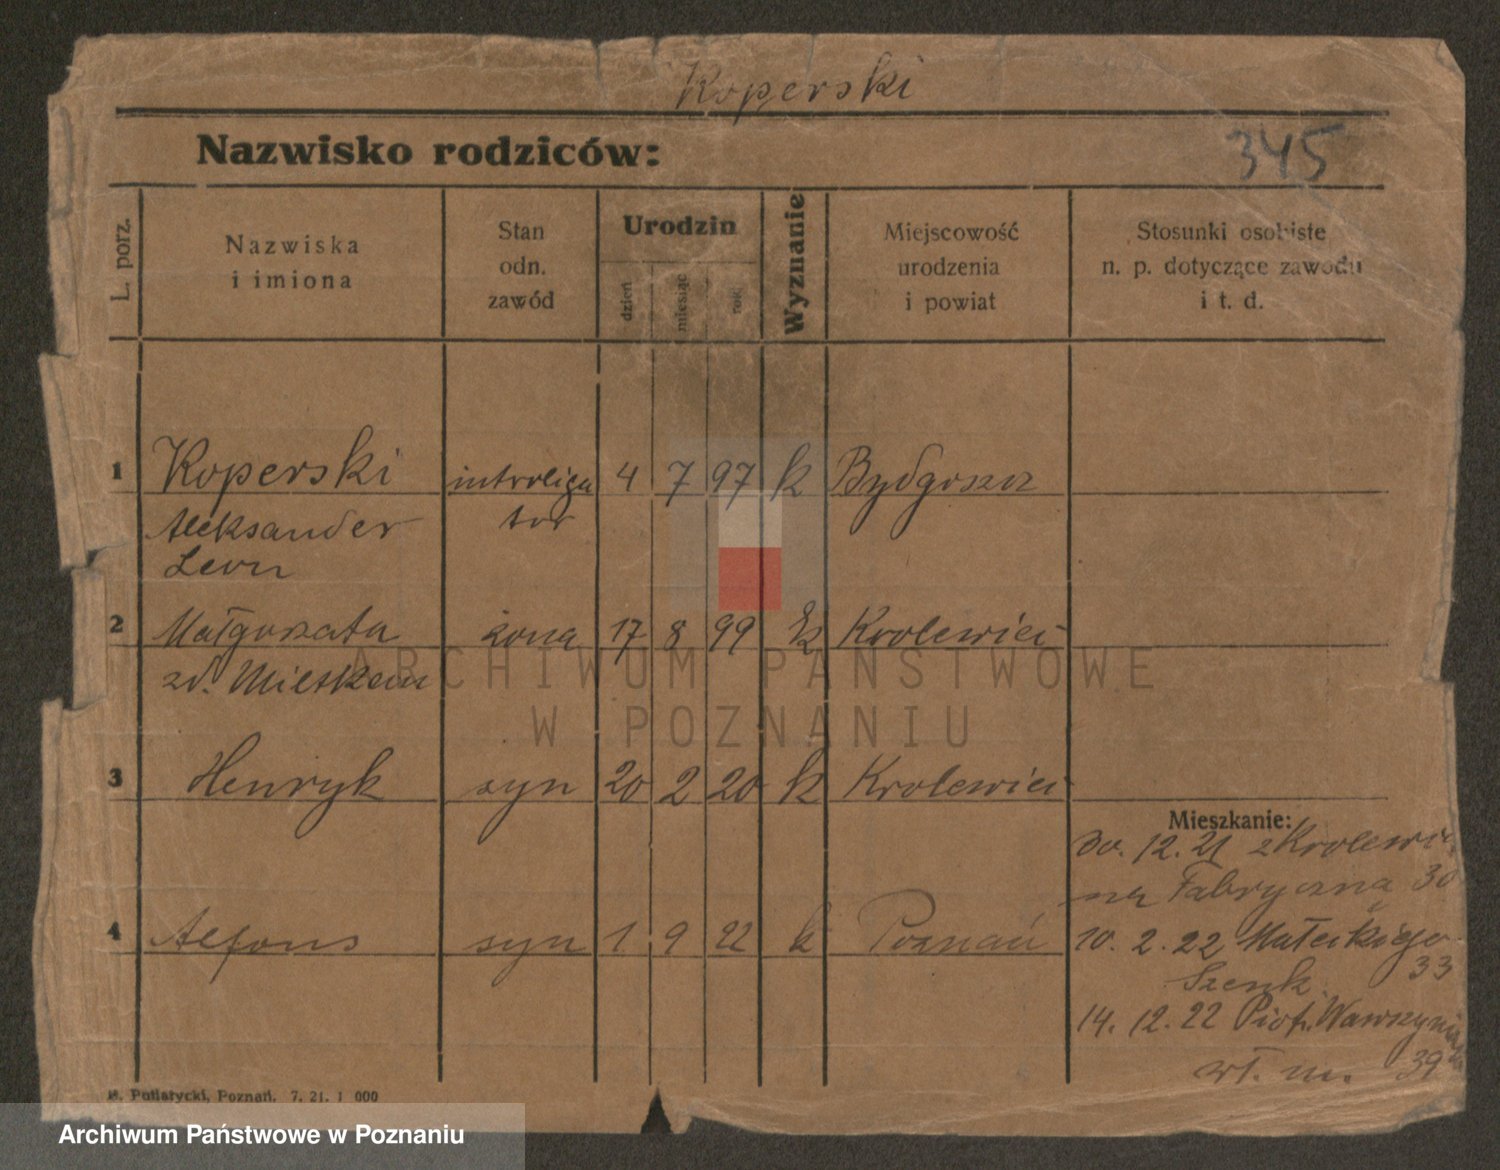 Koperski
Nazwisko rodziców:
345
L. porz.
Nazwiska
i imiona
Stan
odn.
zawód
Urodzin
dzień
miesiąc
rok
Wyznanie
Miejscowość
urodzenia
i powiat
Stosunki osobiste
n. p. dotyczące zawodu
i t. d.
1 Koperski introliga 4 7 97 k Bydgoszcz
Aleksander tor
Leon
2 Małgorzata żona 17 8 99 Królewiec
zd.
ARCHIWUM PAŃSTWOWE
W POZNANIU
3 Henryk syn 20 2 20 k Krolewiec
Mieszkanie:
30. 12. 21 z Krolewca
na Fabryczną 30
4 Alfons syn 1 9 22 k Poznań
10. 2. 22 Małeckiego
33
Szenk.
14. 12. 22 Piotr. Wawrzyniaka
wł. m. 39
Putiatycki, Poznań. 7. 21. 1 000
Archiwum Państwowe w Poznaniu